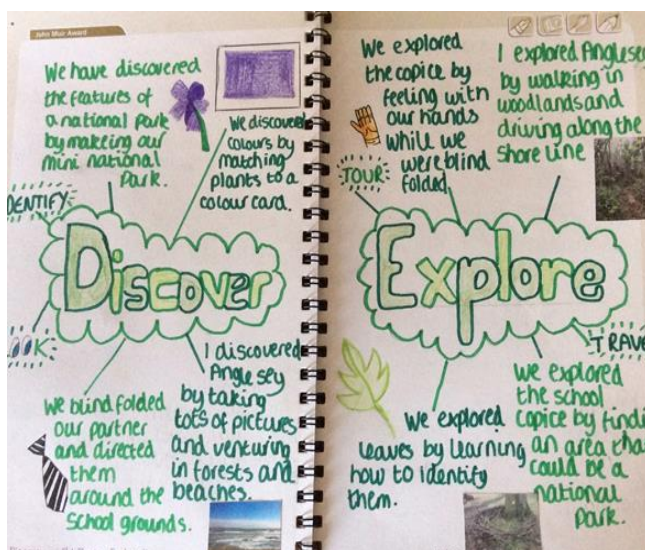 John Muir Award
We have discovered
the features of
a national park
by makeing our
mini national
Park.
We discover
colours by
matching
plants to a
colour card.
DENTIFY
Discover
OOK
We blind folded
our partner
and directed
them
around the
school grounds.
I discovered
Anglesey
by taking
lots of pictures
and venturing
in forests and
beaches.
We explored
the copice by
feeling with
our hands
while we
were blind
folded.
TOUR
I explored Anglesey
by walking in
woodlands and
driving along the
shore line
Explore
TRAVE
We explored
leaves by learning
how to identify
them.
We explored
the school
copice by findi
an area tha
could be a
national
Park.